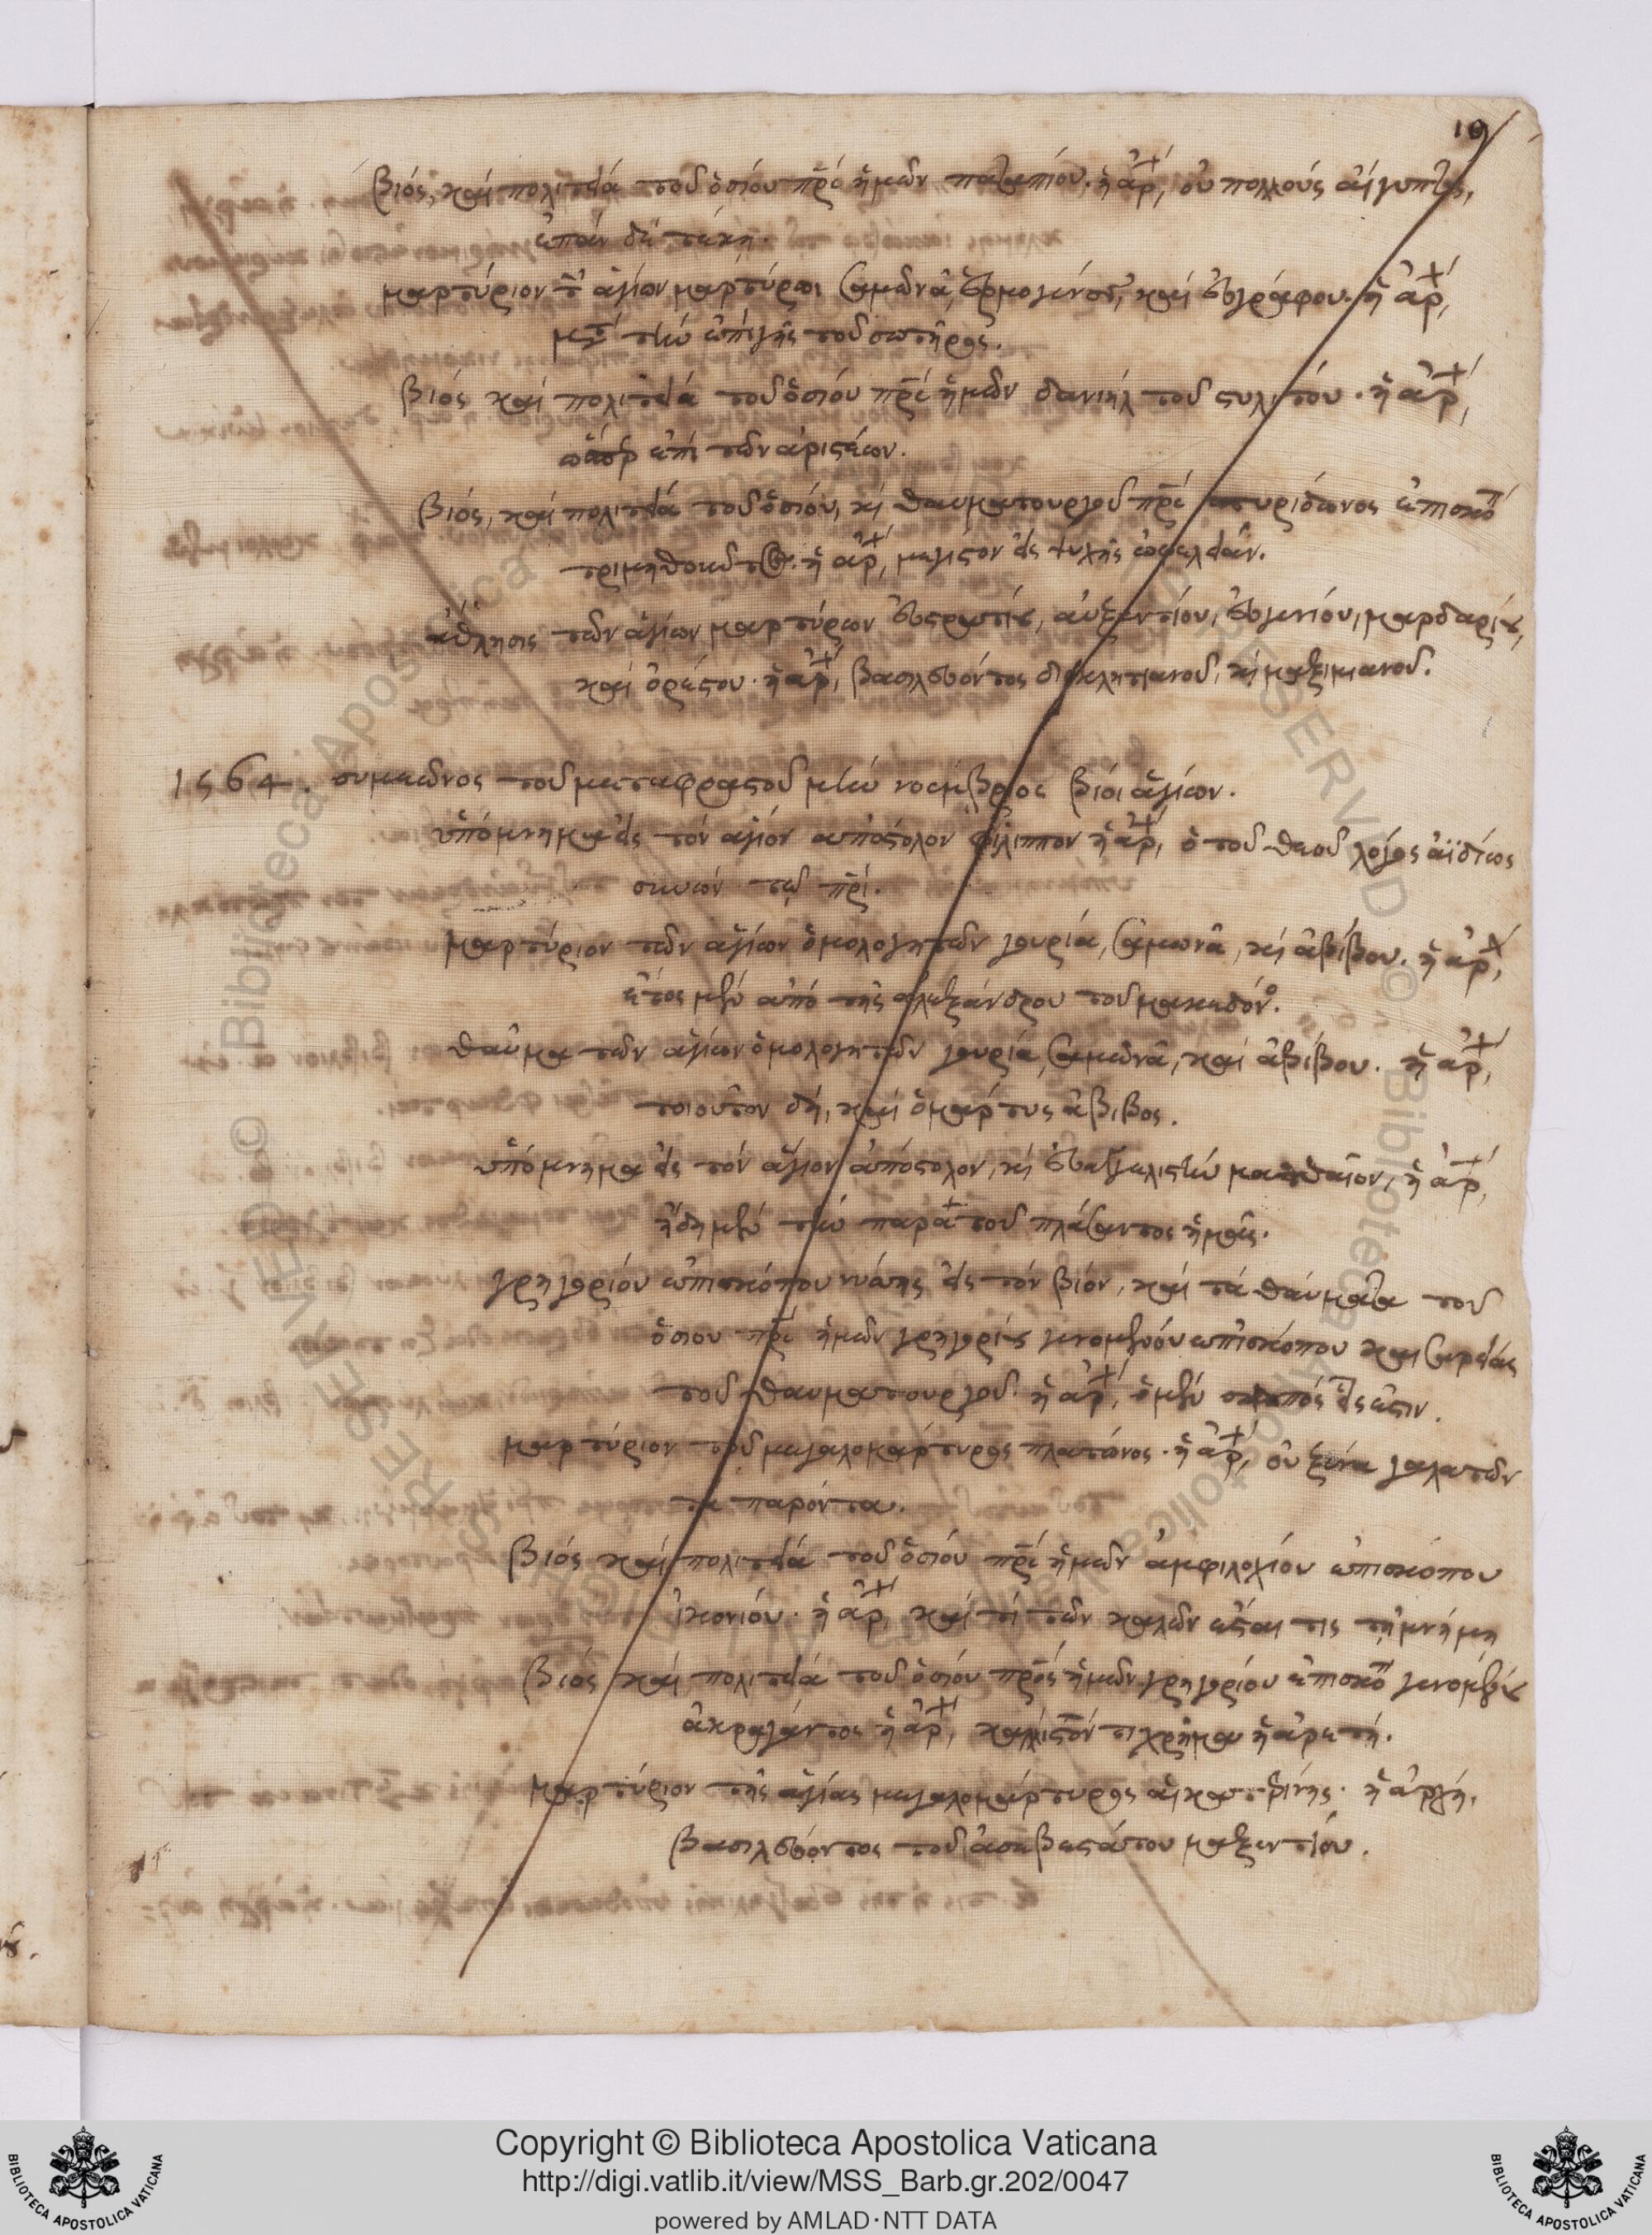 19
βιός, καί πολιτεία τοῦ ὁσίου πρς ἡμῶν παταπίου. ἡ ἀρχ, οὐ πολλούς αἴγυπτος,
μαρτύριον τ ἁγίων μαρτύρων καί εὐγράφου. ἡ ἀρχ,
μετά τήν ἐπίγῆς τοῦ σωτῆρος.
βιός καί πολιτεία τοῦ ὁσίου πρς ἡμῶν δανιήλ τοῦ στυλίτου. ἡ ἀρχ,
ὥσπερ ἐπί τῶν ἀριστέων.
βιός, καί πολιτεία τοῦ ὁσίου, κ θαυματουργοῦ πρς σπυρίδωνος ἐπισκοπ
ἡ ἀρχ, μέγιστον εἰς ψυχῆς ὠφέλειαν.
ἄθλησις τῶν ἁγίων μαρτύρων εὐστρατίου, αὐξεντίου, εὐγενίου, μαρδαρίου,
καί ὀρέστου. ἡ ἀρχ, βασιλεύοντος διοκλητιανοῦ, κ μαξιμιανοῦ.
1564. συμεῶνος τοῦ μεταφραστοῦ μήν νοέμβριος βίοι ἁγίων.
ὑπόμνημα εἰς τόν ἅγιον ἀπόστολον φίλιππον ἡ ἀρχ, ὁ τοῦ θεοῦ λόγος ἀϊδίως
συνών τῷ πρί.
μαρτύριον τῶν ἁγίων ὁμολογητῶν γουρία, σαμωνᾶ, κ ἀβίβου. ἡ ἀρχ,
ἔτος μέν ἀπό τῆς ἀλεξάνδρου τοῦ μακεδόνο.
θαῦμα τῶν ἁγίων ὁμολογητῶν γουρία, σαμωνᾶ, καί ἀβίβου. ἡ ἀρχ,
τοιοῦτον δή, καί ὁ μάρτυς ἄβιβος.
ὑπόμνημα εἰς τόν ἅγιον ἀπόστολον, κ εὐαγγελιστήν ματθαῖον, ἡ ἀρχ,
ἤδη μέν τήν παρά τοῦ πλάσαντος ἡμᾶς.
γρηγορίου ἐπισκόπου νύσης εἰς τόν βίον, καί τά θαύματα τοῦ
ὁσίου πρς ἡμῶν γρηγορίου γενομένου ἐπισκόπου καισαρείας
τοῦ θαυματουργοῦ. ἡ ἀρχ, ὁ μέν σκοπός εἷς ἐστιν.
μαρτύριον τοῦ μεγαλομάρτυρος πλατώνος. ἡ ἀρχ, οὐ ξένα γαλατῶν
τα παρόντα.
βιός καί πολιτεία τοῦ ὁσίου πρς ἡμῶν ἀμφιλοχίου ἐπισκόπου
ἰκονίου. ἡ ἀρχ, καί τί τῶν καλῶν ἔσται τις τῇ μνήμη
βιός καί πολιτεία τοῦ ὁσίου πρός ἡμῶν γρηγορίου ἐπισκοπ γενομένου
ἀκραγάντος ἡ ἀρχ, καλλιστόν τι χρῆμα ἡ ἀρετή.
μαρτύριον τῆς ἁγίας μεγαλομάρτυρος αἰκατερίνης. ἡ ἀρχή,
βασιλεύοντος τοῦ ἀσεβεστάτου μαξεντίου.
Copyright © Biblioteca Apostolica Vaticana
http://digi.vatlib.it/view/MSS_Barb.gr.202/0047
powered by AMLAD·NTT DATA